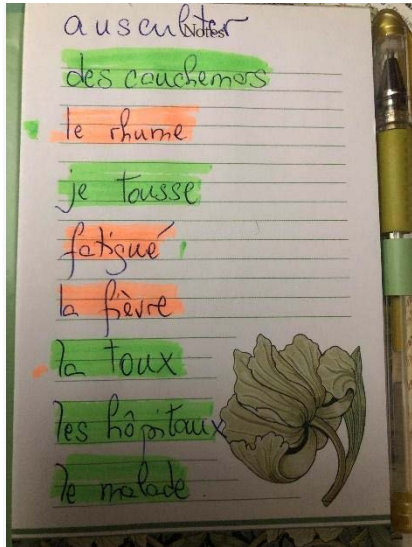 Notes
ausculter
des cauchemars
le rhume
je tousse
fatigué
la fièvre
la toux
les hôpitaux
le malade